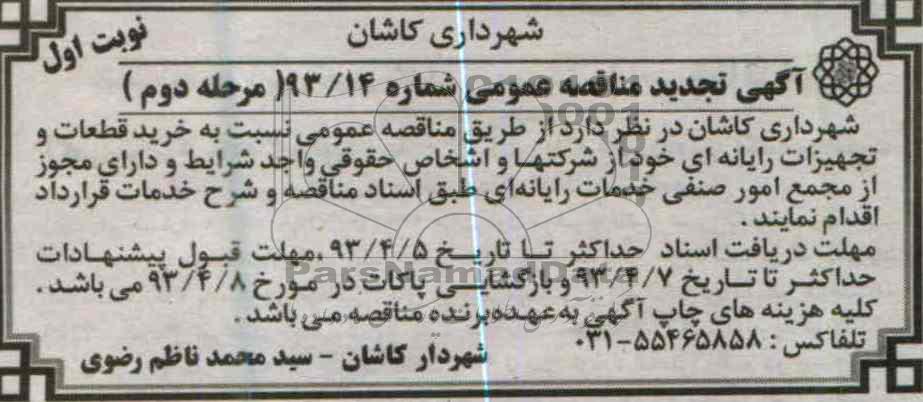 شهرداری کاشان
نوبت اول
آگهی تجدید مناقصه عمومی شماره ۹۳/۱۴( مرحله دوم )
شهرداری کاشان در نظر دارد از طریق مناقصه عمومی نسبت به خرید قطعات و
تجهیزات رایانه ای خود از شرکتها و اشخاص حقوقی واجد شرایط و دارای مجوز
از مجمع امور صنفی خدمات رایانه‌ای طبق اسناد مناقصه و شرح خدمات قرارداد
اقدام نمایند .
مهلت دریافت اسناد حداکثر تا تاریخ ۹۳/۴/۵ ،مهلت قبول پیشنهادات
حداکثر تا تاریخ ۹۳/۴/۷ و بازگشایی پاکات در مورخ ۹۳/۴/۸ می باشد .
کلیه هزینه های چاپ آگهی به عهده برنده مناقصه می باشد .
تلفاکس : ۵۵۴۶۵۸۵۸-۰۳۱
شهردار کاشان - سید محمد ناظم رضوی
ParsNamadData